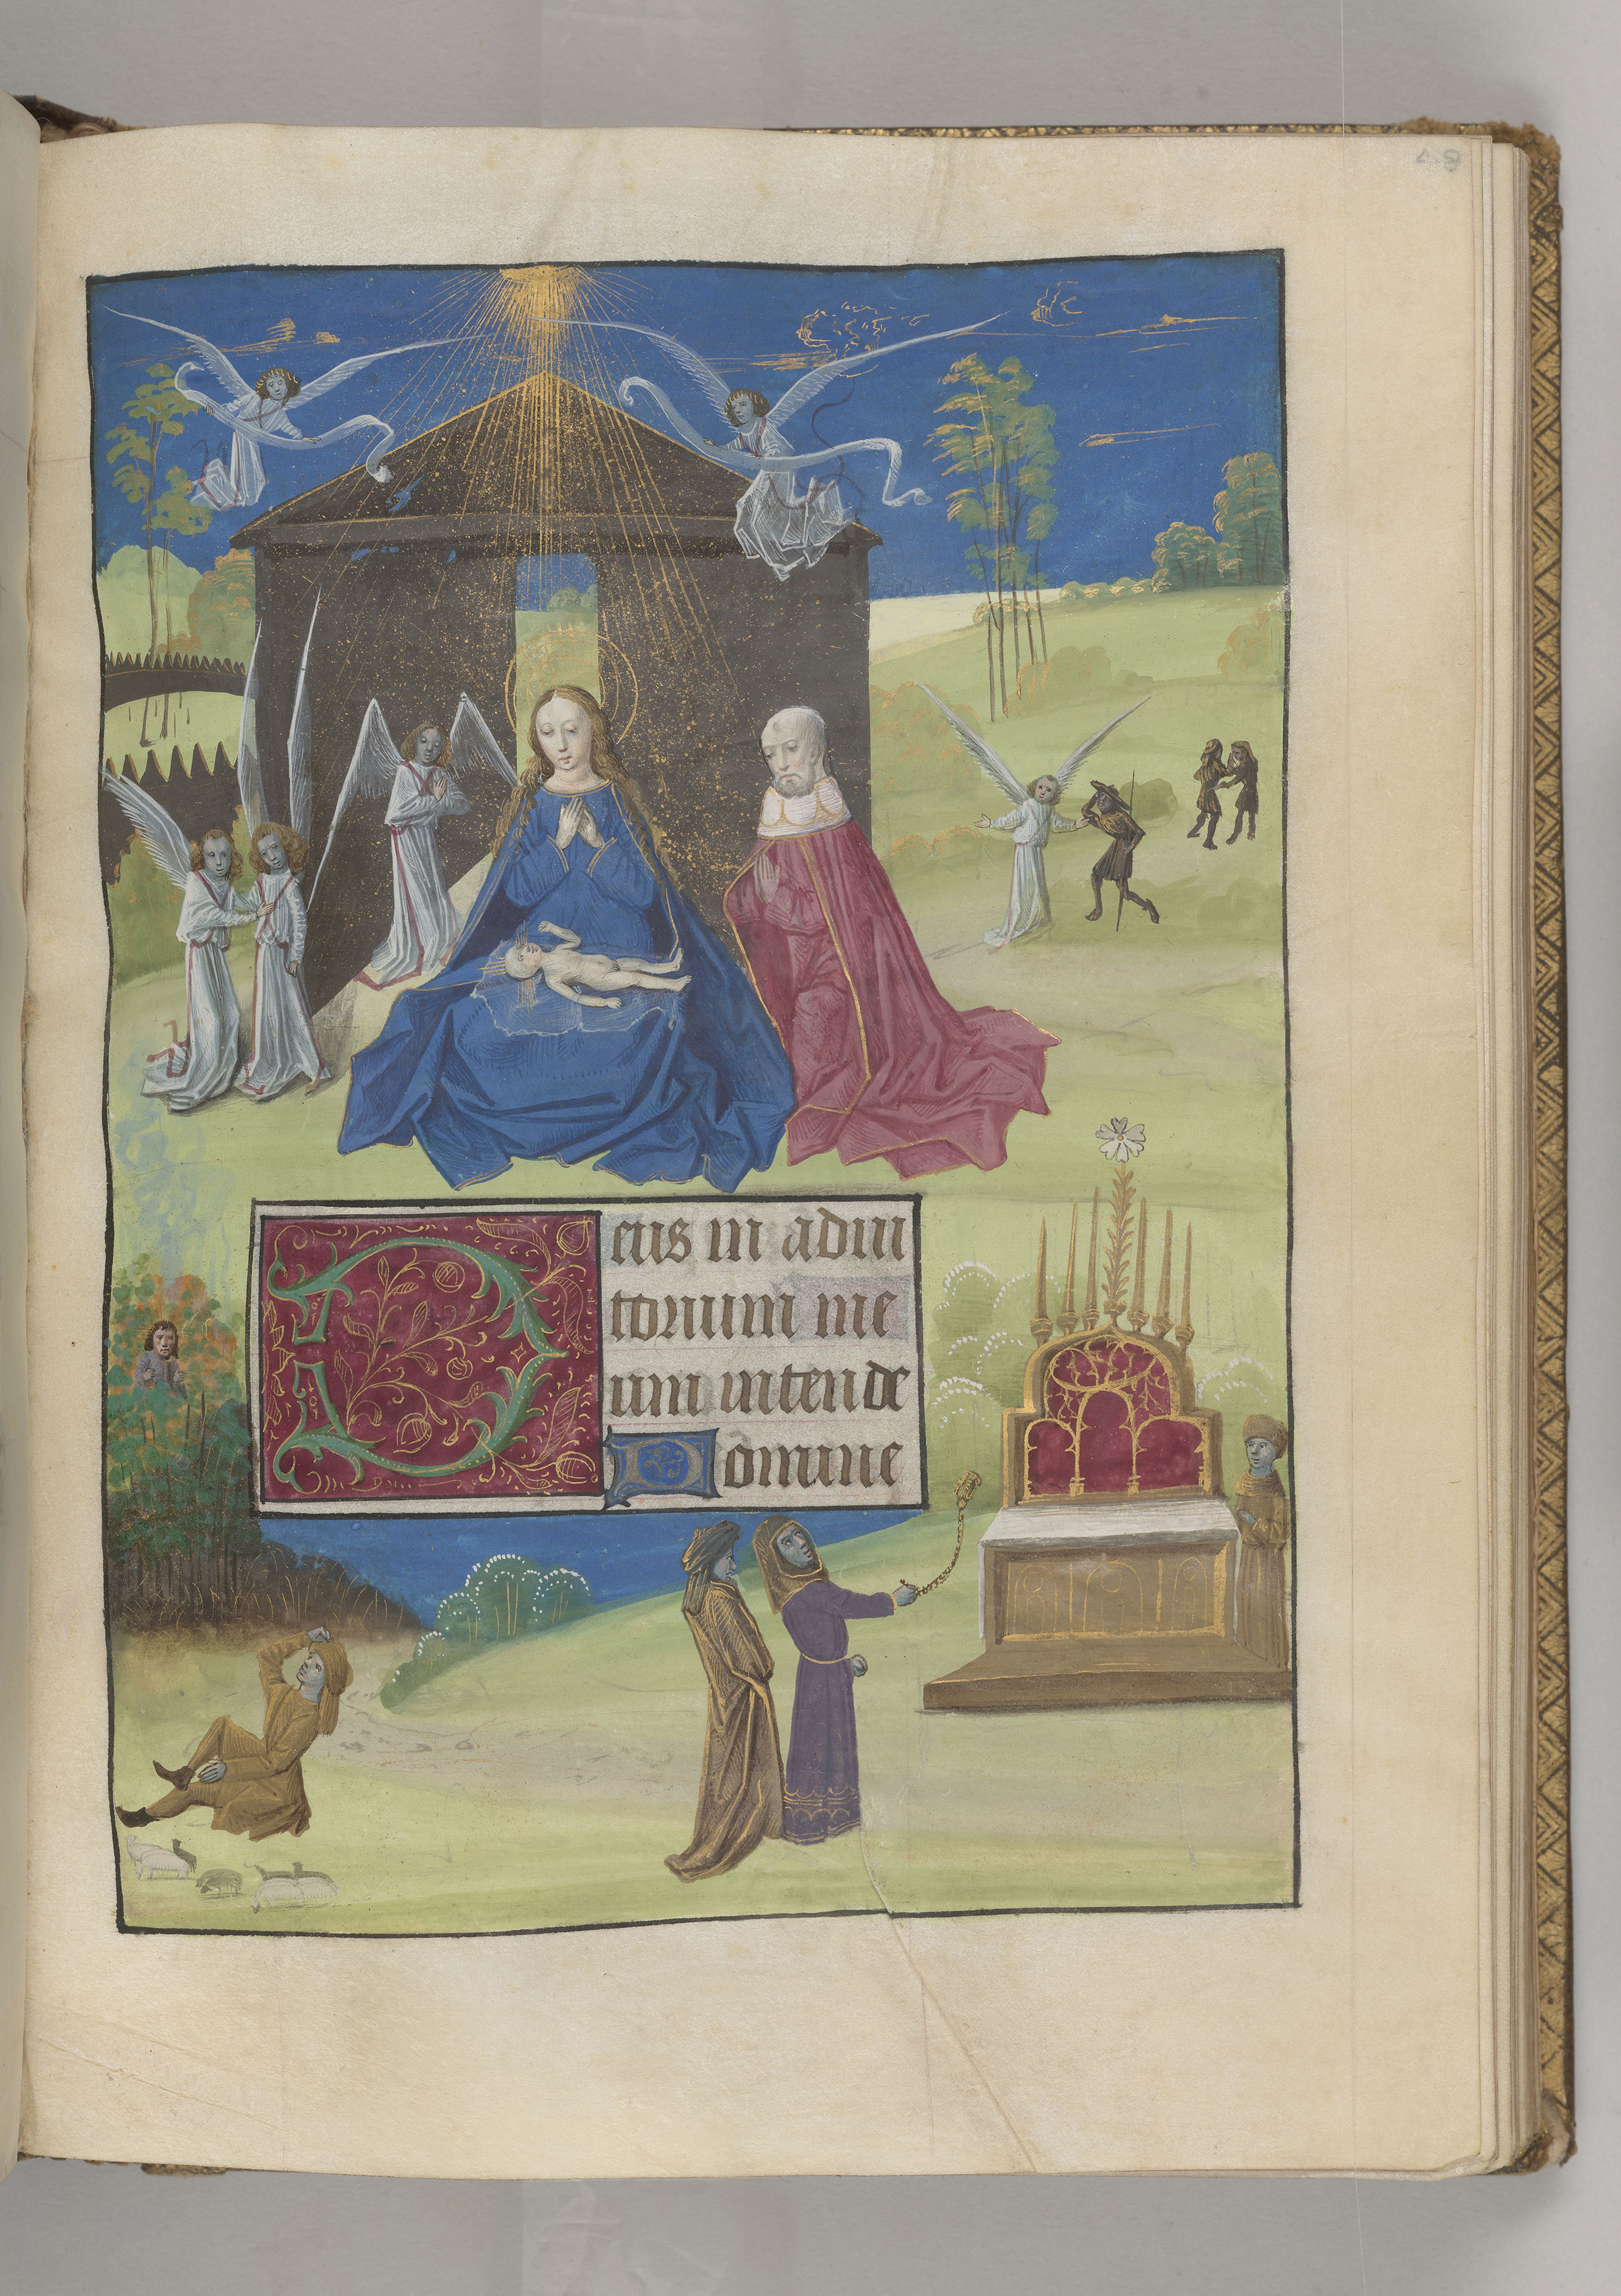 48
Deus in adiu
torium me
um intende
Domine